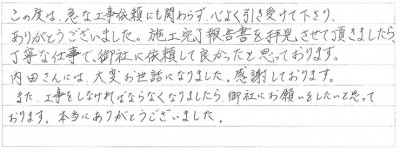 この度は、急な工事依頼にも関わらず、心よく引き受けて下さり、
ありがとうございました。施工完了報告書を拝見させて頂きましたら、
丁寧な仕事で、御社に依頼して良かったと思っております。
内田さんには、大変お世話になりました。感謝しております。
また、工事をしなければならなくなりましたら、御社にお願いをしたいと思って
おります。本当にありがとうございました。